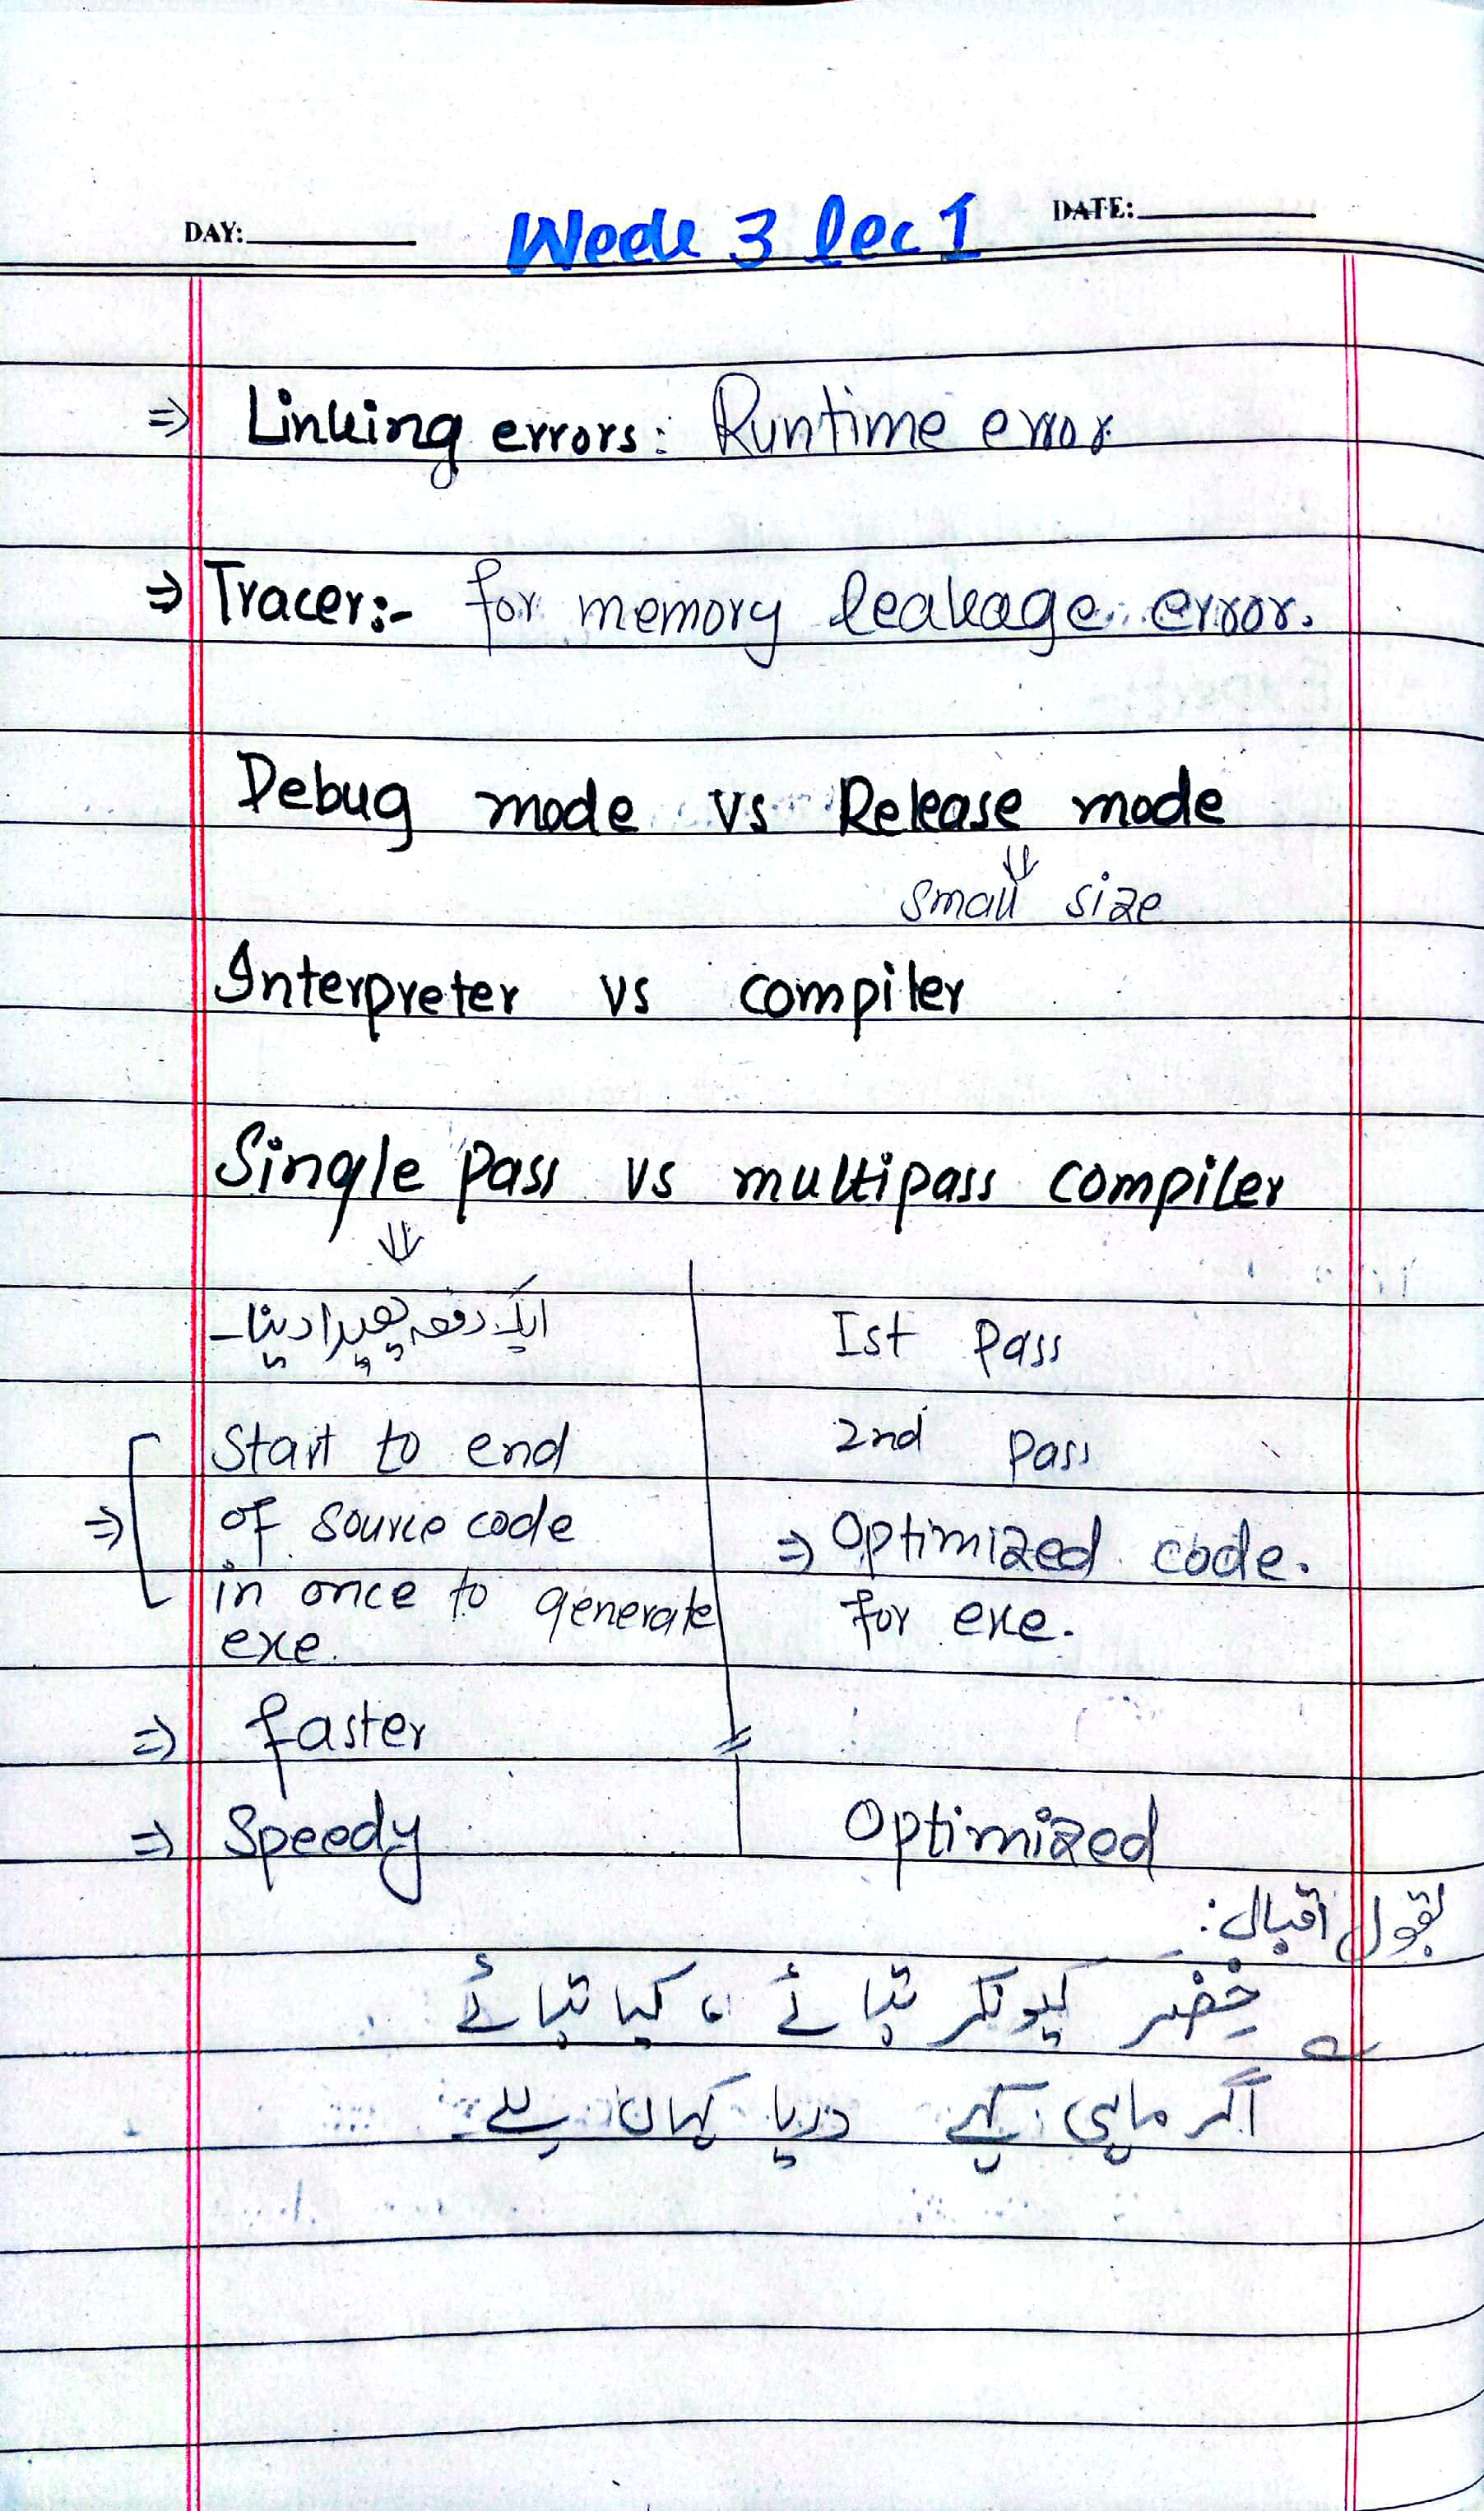 DAY:
Week 3 lec 1
DATE:
⇒ Linking errors: Runtime error
⇒ Tracer:- for memory leakage error.
Debug mode vs Release mode
⇓
small size
Interpreter vs compiler
Single pass vs multipass compiler
⇓
ایک دفعہ پھیرا دینا۔
Start to end
⇒ of source code
in once to generate
exe.
⇒ faster
⇒ Speedy
Ist pass
2nd pass
⇒ Optimized code.
for exe.
Optimized
بقول اقبال:
خِضر کیونکر بتائے ، کیا بتائے
اگر ماہی کہے دریا کہاں ہے